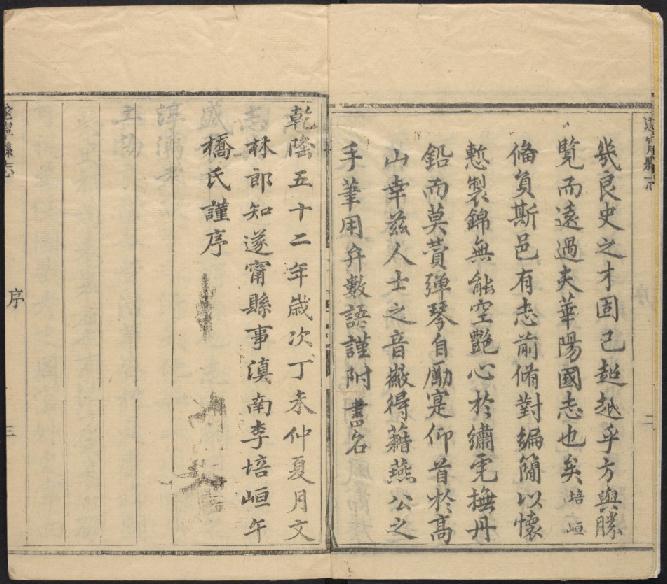 幾良史之才固已超越乎方輿勝
覽而遠過夫華陽國志也矣培峘
備員斯邑有志前脩對編簡以懷
慙製錦無能空艷心於繡虎撫丹
鉛而莫賛彈琴自勵寔仰首於高
山幸茲人士之音徽得藉燕公之
手筆用弁數語謹附書名
乾隆五十二年歲次丁未仲夏月文
林郎知遂甯縣事滇南李培峘午
橋氏謹序
遂甯縣志
序
二
序
三